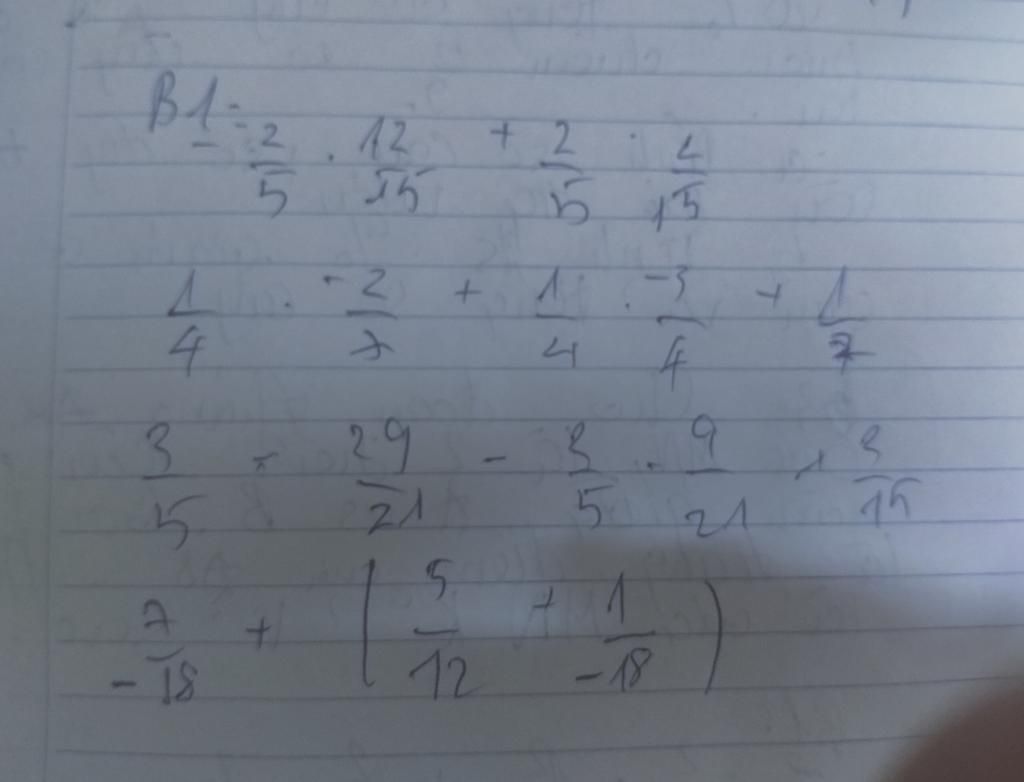 B1:
2/5 . 12/15 + 2/5 . 4/15
1/4 . -2/7 + 1/4 . -3/4 + 1/7
3/5 . 29/21 - 3/5 . 9/21 + 3/15
7/-18 + (5/12 + 1/-18)